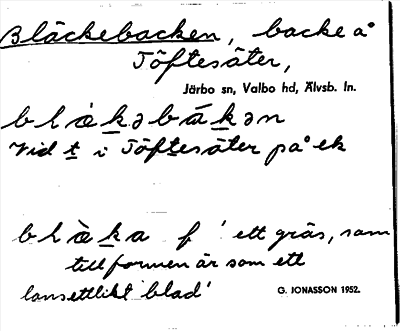 Bläckebacken, backe å
Töftesäter,
Järbo sn, Valbo hd, Älvsb. ln.
blæ̀kəbákən
Vid t i Töftesäter på ek
blæ̀ka f 'ett gräs, som
till formen är som ett
lansettlikt blad'
G. JONASSON 1952.